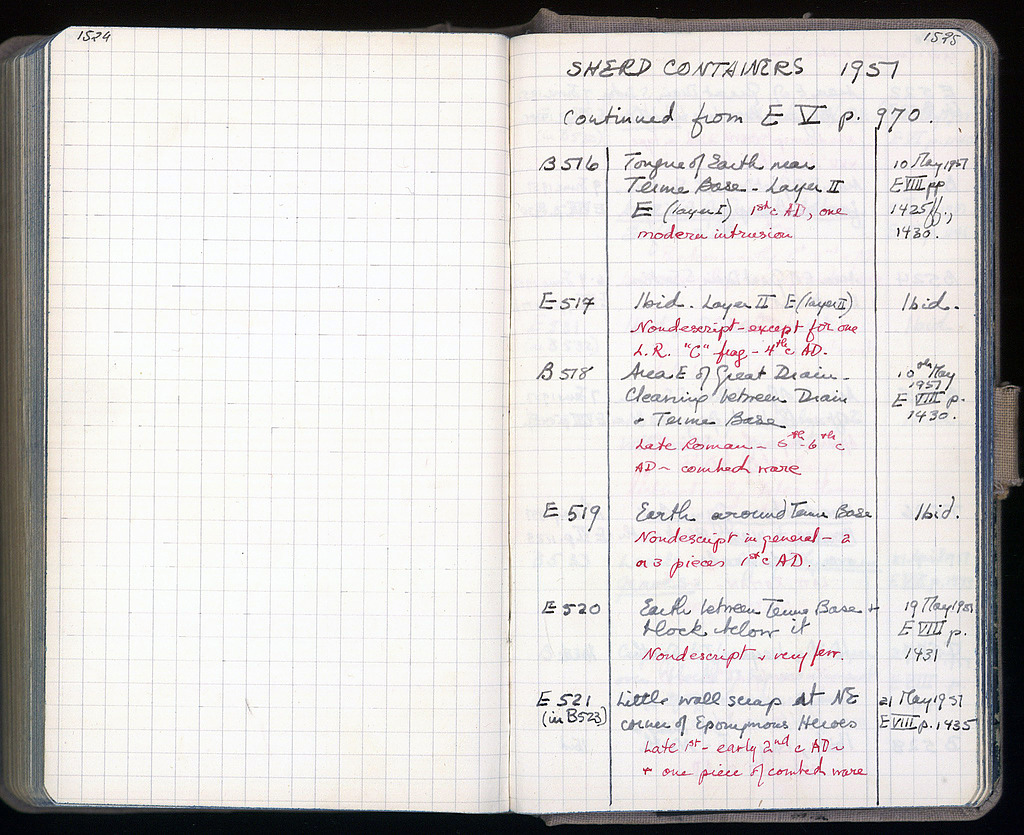 1524
1525
SHERD CONTAINERS 1957
Continued from E V p. 970.
B 516 Tongue of Earth near 10 May 1957
Terme Base - Layer II E VIII pp
E (layer I) 1st c AD, one 1425ff.,
modern intrusion 1430.
E 517 Ibid. Layer II E (layer II) Ibid.
Nondescript - except for one
L.R. "C" frag - 4th c AD.
B 518 Area E of Great Drain - 10th May
1957
Cleaning between Drain E VIII p.
+ Terme Base 1430.
Late Roman - 5th-6th c
AD - combed ware
E 519 Earth around Terme Base Ibid.
Nondescript in general - 2
or 3 pieces 1st c AD.
E 520 Earth between Terme Base + 19 May 1957
block below it E VIII p.
Nondescript + very few. 1431
E 521 Little wall scrap at NE 21 May 1957
(in B523) corner of Eponymous Heroes E VIII p. 1435
Late 1st - early 2nd c AD -
+ one piece of combed ware